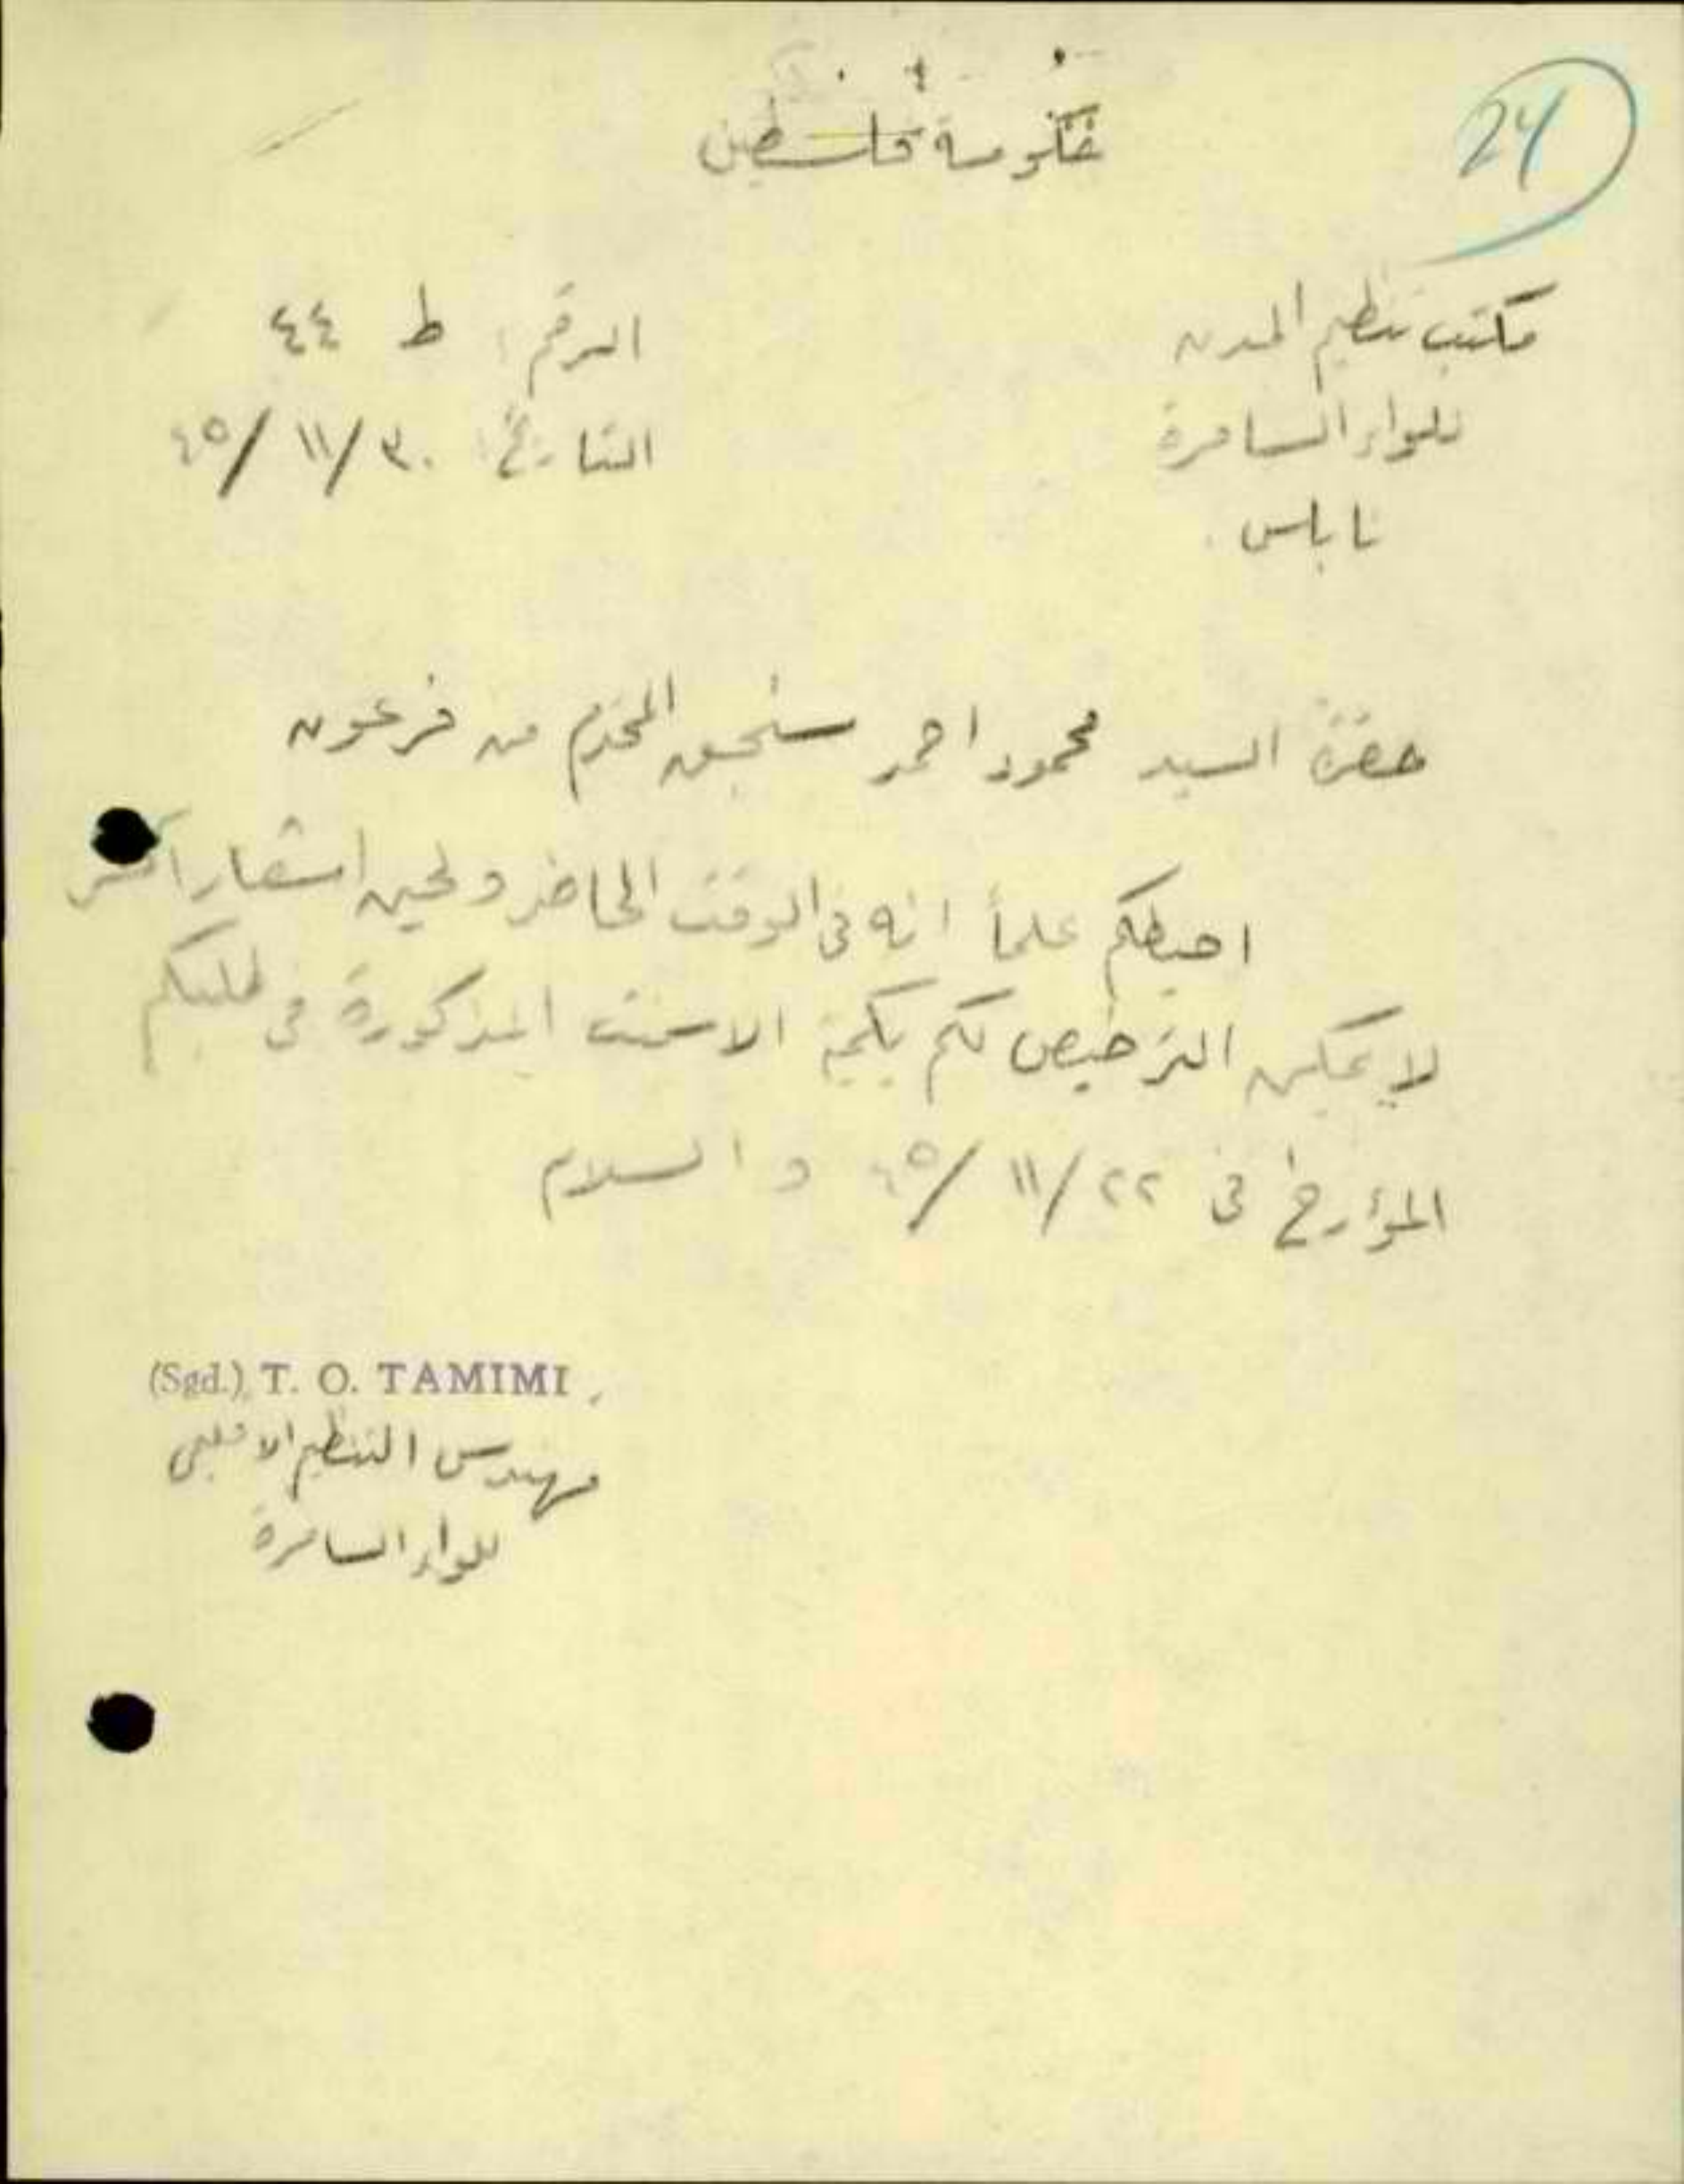 24
حكومة فلسطين
مكتب تنظيم المدن
للواء السامرة
نابلس
الرقم: ط ٤٤
التاريخ: ٣٠/١١/٤٥
حضرة السيد محمود احمد سنجق المحترم من فرعون
احيطكم علماً انه في الوقت الحاضر ولحين اشعار آخر
لا يمكن الترخيص لكم بكمية الاسمنت المذكورة في طلبكم
المؤرخ في ٢٢/١١/٤٥ والسلام
(Sgd.) T. O. TAMIMI
مهندس التنظيم الاقليمي
للواء السامرة